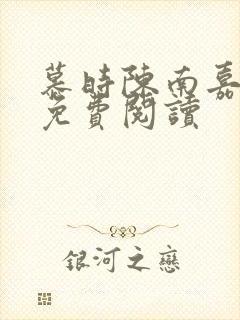 慕時陳南嘉
免費閱讀
銀河之戀